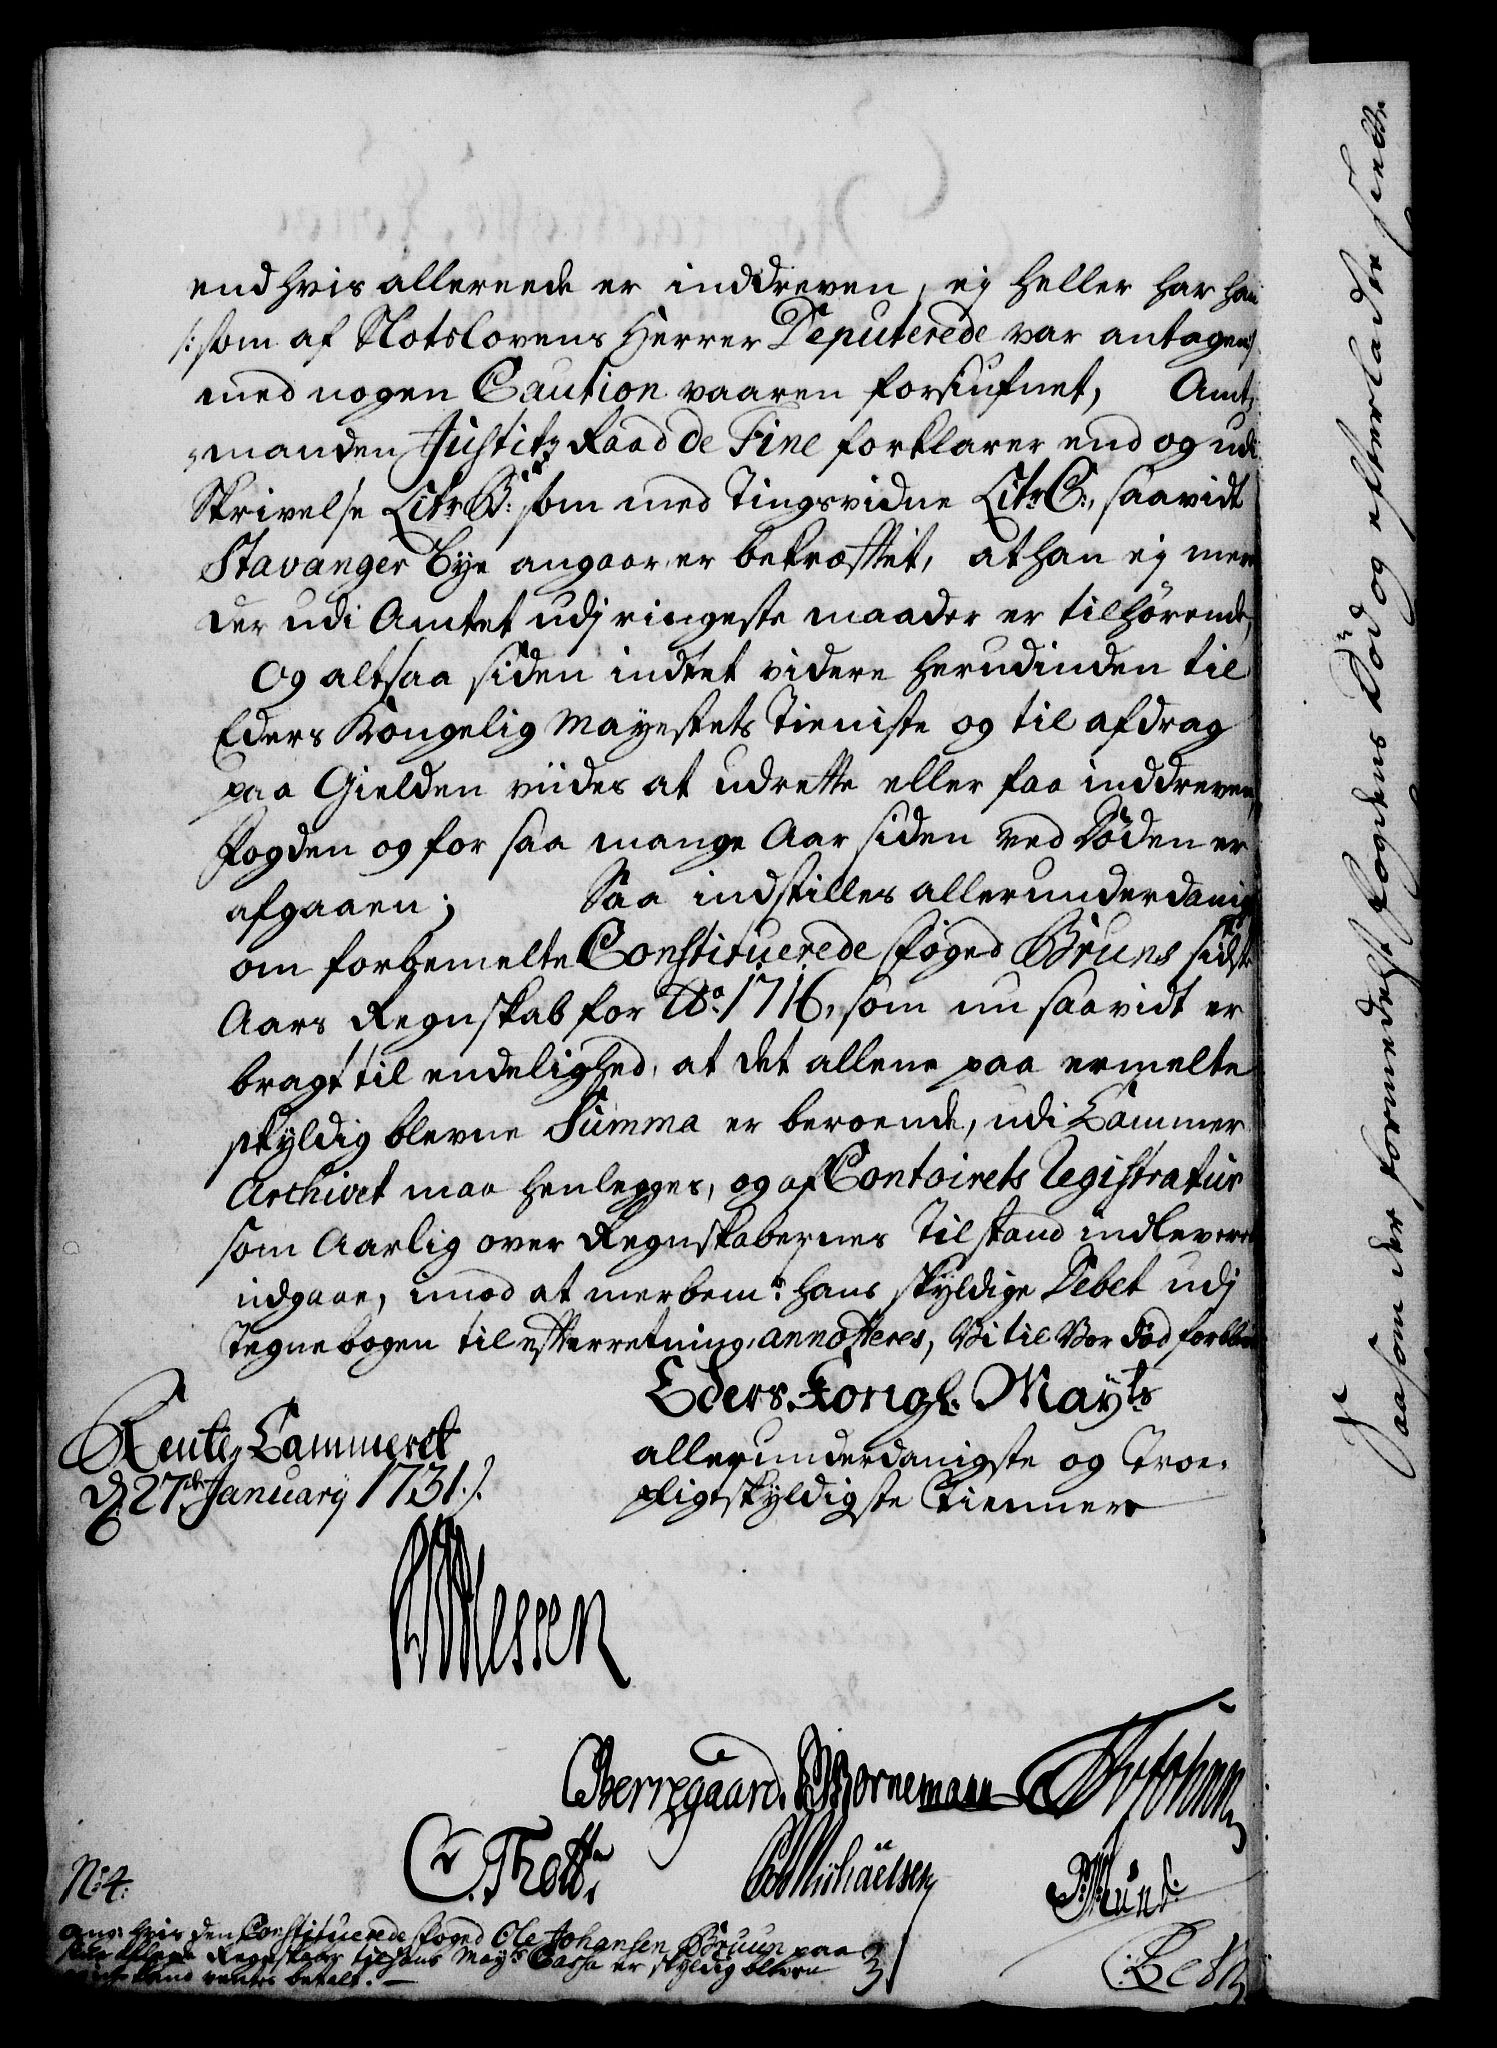 end hvis allereede er inddreven, ej heller har han
/: som af Slotslovens Herrer Deputerede var antagen :/
med nogen Caution vaaren forsiufnet, Amt,
manden Justitz Raad de Fine forklarer end og udi
Skrivelse Litr: B: som med Tingsvidne Litr: C:, saavidt
Stavanger Bye angaar, er bekræftet, at han ej meer
der udi Amtet udj ringeste maader er tilhörende,
Og altsaa siden indtet videre herudinden til
Eders Kongelig Mayestets Tieniste og til afdrag
paa Gielden viides at udrette eller faa inddreven,
Fogden og for saa mange Aar siden ved Döden er
afgaaen; Saa indstilles allerunderdanigst
om forbemelte Constituerede Foged Bruns sidste
Aars Regnskab for Ao. 1716, som nu saavidt er
bragt til endelighed, at det allene paa ermelte
skyldig blevne Summa er beroende, udi Cammer
Archivet maa henlegges, og af Contoirets Registratur
som Aarlig over Regnskabernes Tilstand indleveres
udgaae, imod at merbemte: hans skyldige Debet udj
Tegnebogen til efterretning annotteres, Vi til Vor Död forblive
Eders Kongl. Mayts
allerunderdanigste og Troe,
pligtskyldigste Tiennere
Rente Cammeret
d. 27de January 1731.
Berregaard. Bornemann
C. Thott.
Michaelsen
Mund.
No: 4:
ang: hvis den Constituerede Foged Ole Johansen Bruun paa
Regnskaber til hans Mayts Cassa er skyldig bleven
betalt. —
Saasom der formedelst Fogdens Död og efterladte